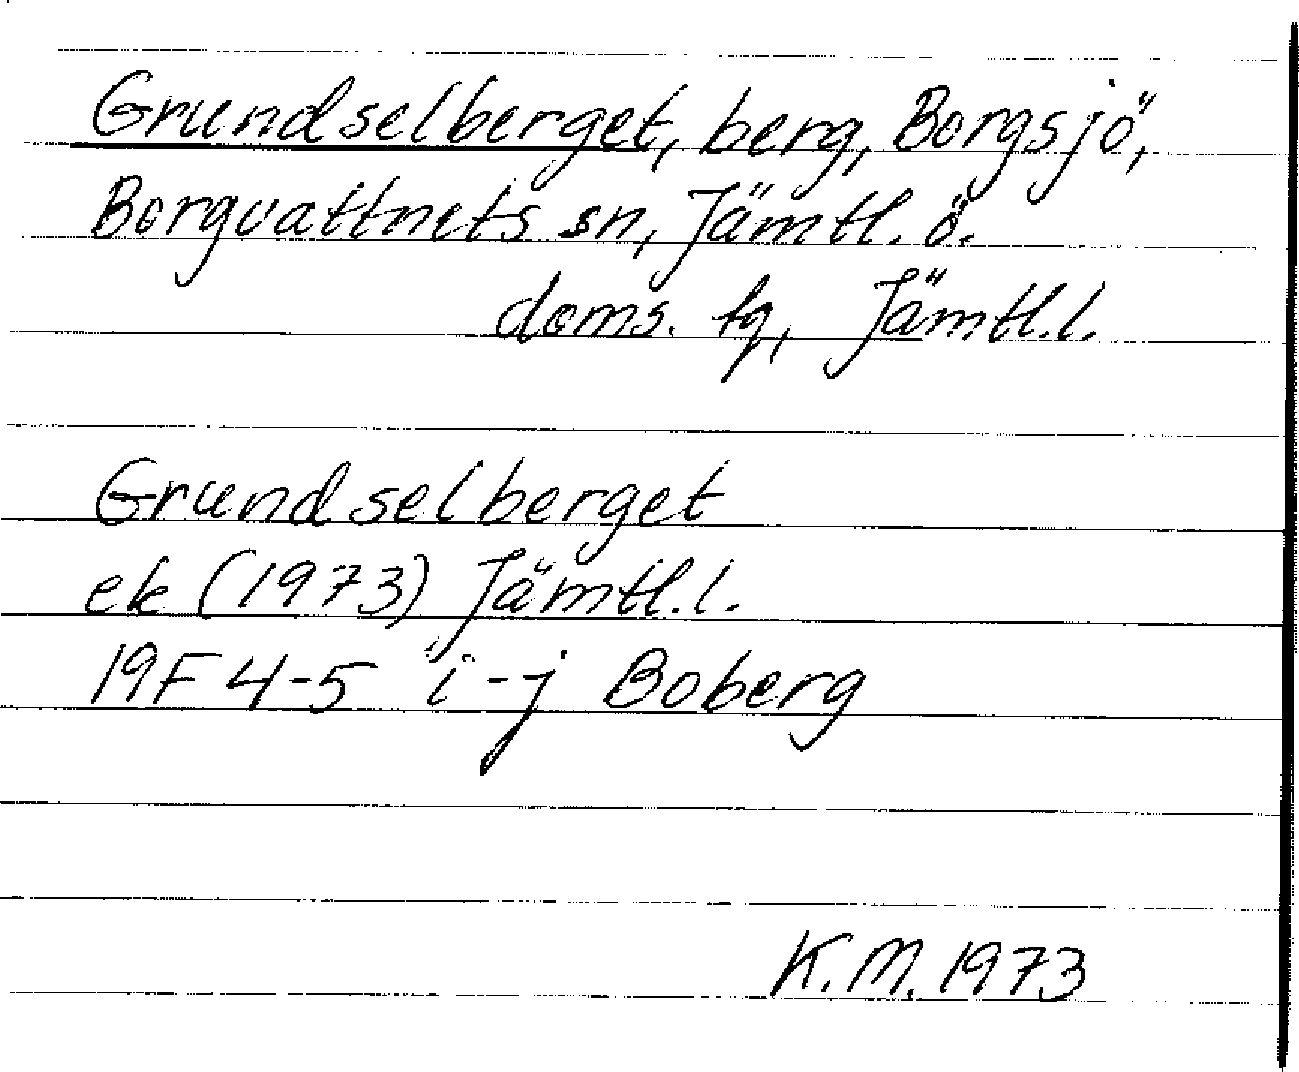 Grundselberget, berg, Borgsjö,
Borgvattnets sn, Jämtl. ö.
doms. tg, Jämtl. l.
Grundselberget
ek (1973) Jämtl. l.
19F 4-5 i-j Boberg
K.M. 1973